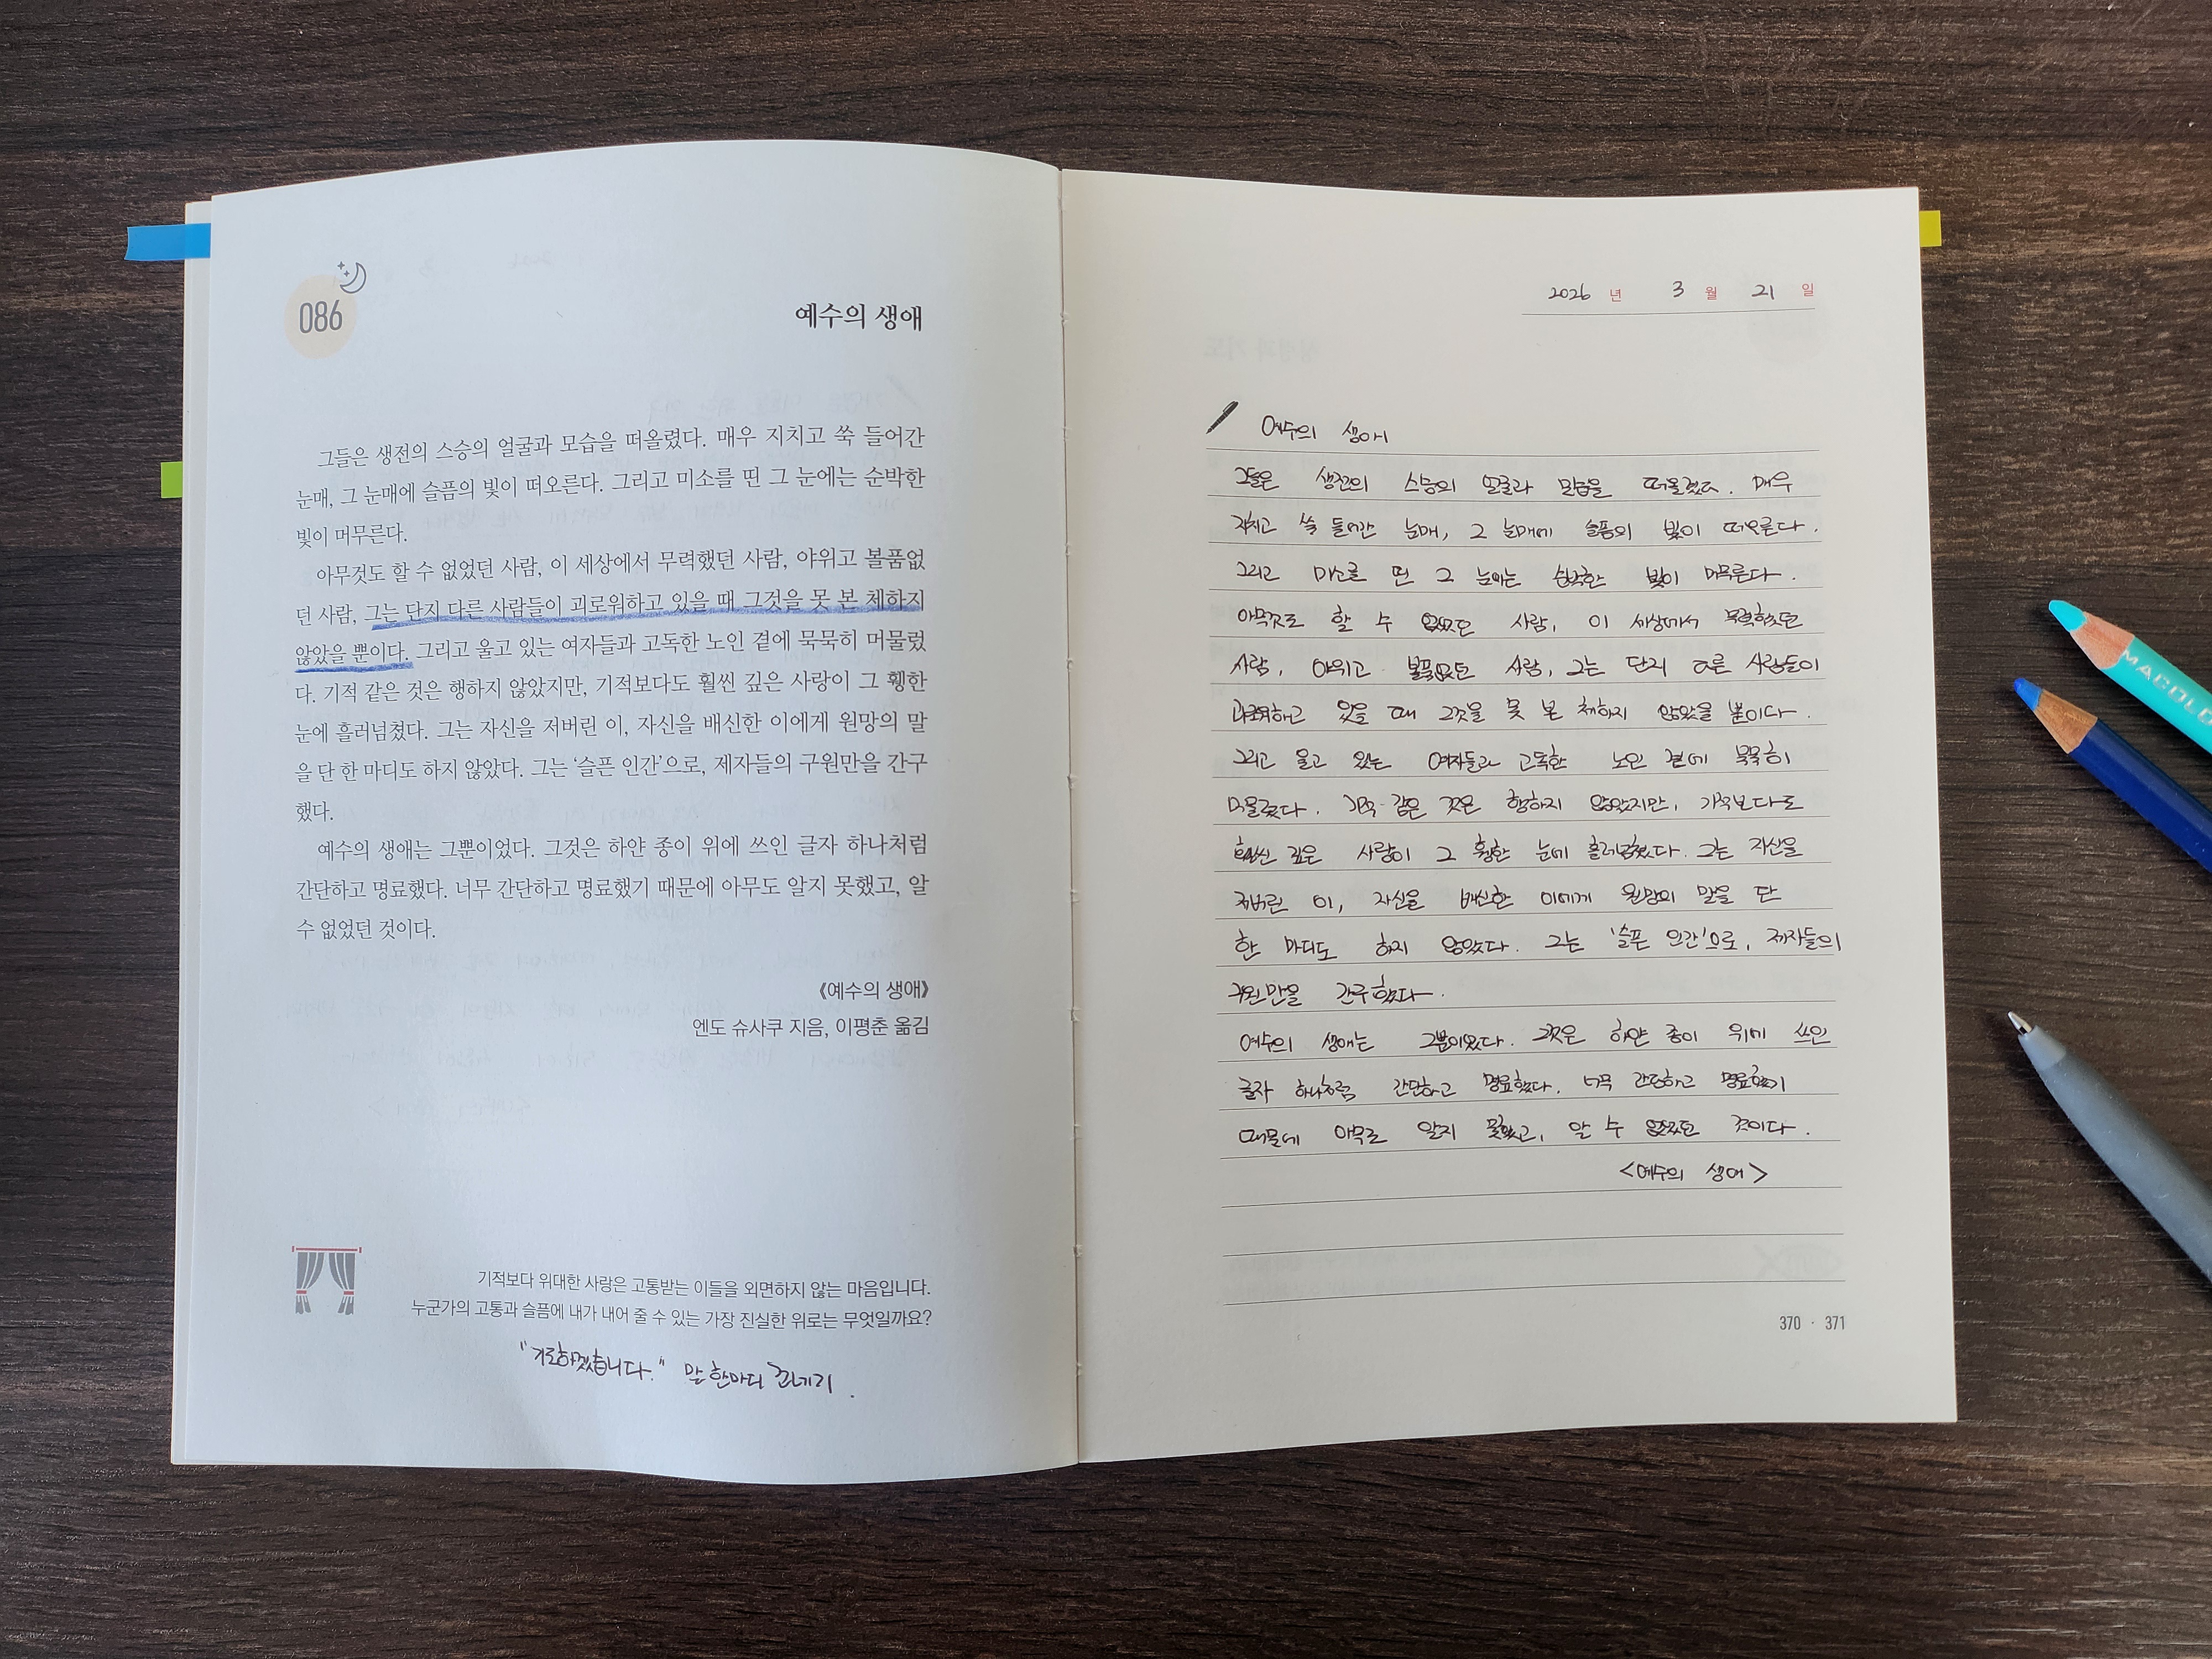 086
예수의 생애
그들은 생전의 스승의 얼굴과 모습을 떠올렸다. 매우 지치고 쑥 들어간
눈매, 그 눈매에 슬픔의 빛이 떠오른다. 그리고 미소를 띤 그 눈에는 순박한
빛이 머무른다.
아무것도 할 수 없었던 사람, 이 세상에서 무력했던 사람, 야위고 볼품없
던 사람, 그는 단지 다른 사람들이 괴로워하고 있을 때 그것을 못 본 체하지
않았을 뿐이다. 그리고 울고 있는 여자들과 고독한 노인 곁에 묵묵히 머물렀
다. 기적 같은 것은 행하지 않았지만, 기적보다도 훨씬 깊은 사랑이 그 휑한
눈에 흘러넘쳤다. 그는 자신을 저버린 이, 자신을 배신한 이에게 원망의 말
을 단 한 마디도 하지 않았다. 그는 ‘슬픈 인간’으로, 제자들의 구원만을 간구
했다.
예수의 생애는 그뿐이었다. 그것은 하얀 종이 위에 쓰인 글자 하나처럼
간단하고 명료했다. 너무 간단하고 명료했기 때문에 아무도 알지 못했고, 알
수 없었던 것이다.
《예수의 생애》
엔도 슈사쿠 지음, 이평춘 옮김
기적보다 위대한 사랑은 고통받는 이들을 외면하지 않는 마음입니다.
누군가의 고통과 슬픔에 내가 내어 줄 수 있는 가장 진실한 위로는 무엇일까요?
"기도하겠습니다." 말 한마디 건네기.
2026 년 3 월 21 일
예수의 생애
그들은 생전의 스승의 얼굴과 모습을 떠올렸다. 매우
지치고 쑥 들어간 눈매, 그 눈매에 슬픔의 빛이 떠오른다.
그리고 미소를 띤 그 눈에는 순박한 빛이 머무른다.
아무것도 할 수 없었던 사람, 이 세상에서 무력했던
사람, 야위고 볼품없던 사람, 그는 단지 다른 사람들이
괴로워하고 있을 때 그것을 못 본 체하지 않았을 뿐이다.
그리고 울고 있는 여자들과 고독한 노인 곁에 묵묵히
머물렀다. 기적 같은 것은 행하지 않았지만, 기적보다도
훨씬 깊은 사랑이 그 휑한 눈에 흘러넘쳤다. 그는 자신을
저버린 이, 자신을 배신한 이에게 원망의 말을 단
한 마디도 하지 않았다. 그는 '슬픈 인간'으로, 제자들의
구원만을 간구했다.
예수의 생애는 그뿐이었다. 그것은 하얀 종이 위에 쓰인
글자 하나처럼 간단하고 명료했다. 너무 간단하고 명료했기
때문에 아무도 알지 못했고, 알 수 없었던 것이다.
<예수의 생애>
370 · 371